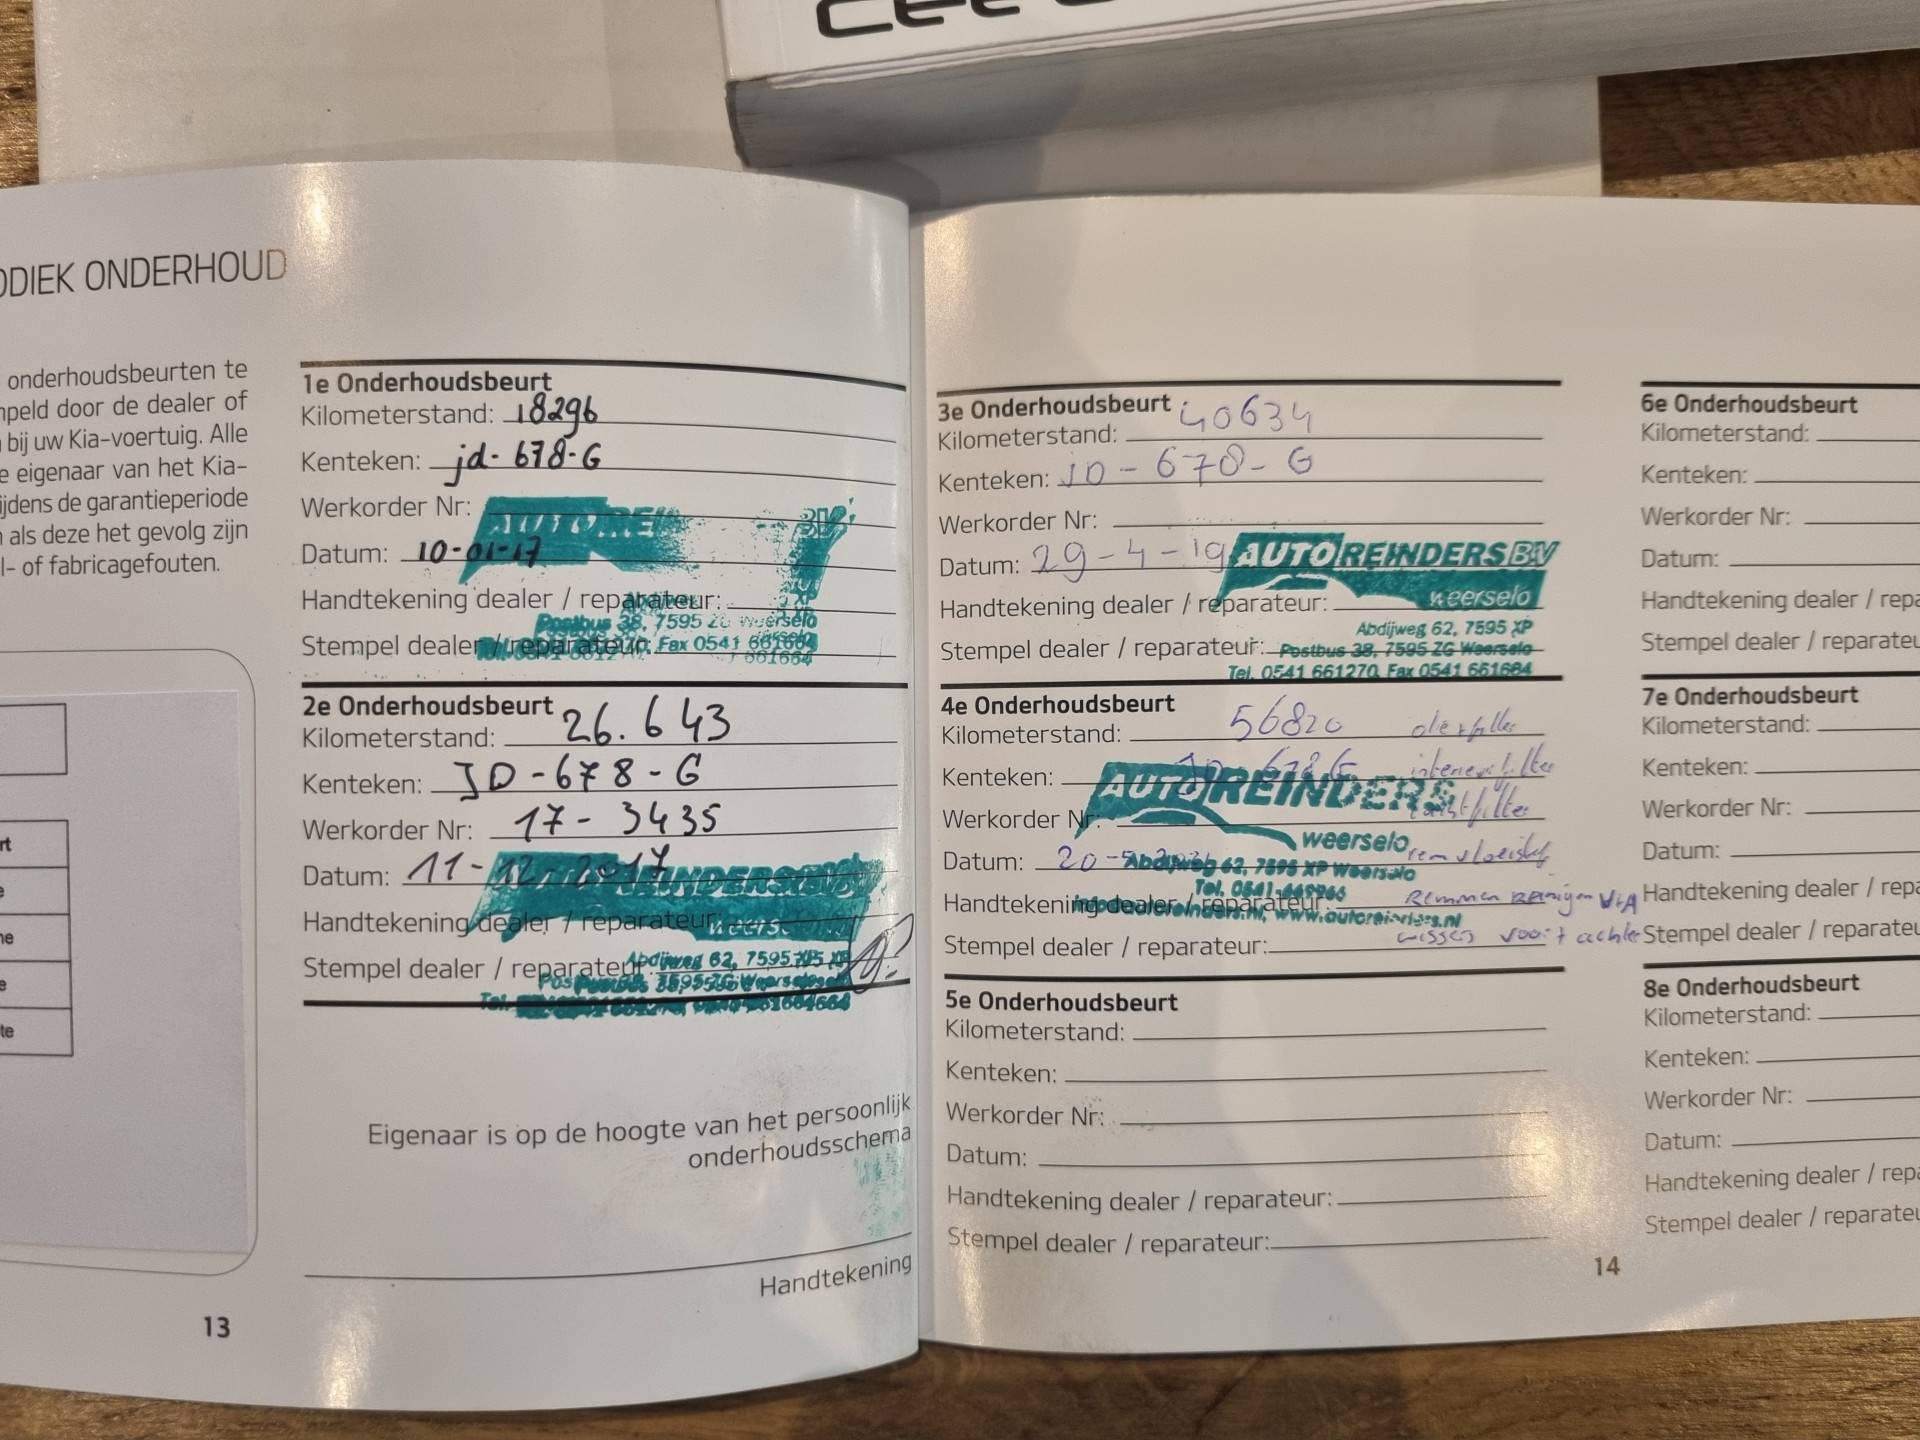 ODIEK ONDERHOUD
onderhoudsbeurten te
mpeld door de dealer of
bij uw Kia-voertuig. Alle
e eigenaar van het Kia-
ijdens de garantieperiode
als deze het gevolg zijn
l- of fabricagefouten.
rt
e
ne
e
te
13
1e Onderhoudsbeurt
Kilometerstand: 18296
Kenteken: jd-678-G
Werkorder Nr:
AUTO REINDERS BV
Datum: 10-01-17
Handtekening dealer / reparateur:
Postbus 38, 7595 ZG Weerselo
Stempel dealer / reparateur: Fax 0541 661664
2e Onderhoudsbeurt
Kilometerstand: 26.643
Kenteken: JD-678-G
Werkorder Nr: 17-3435
Datum: 11-12 2017
AUTO REINDERS BV
Handtekening dealer / reparateur:
weerselo
Abdijweg 62, 7595 XP
Stempel dealer / reparateur:
Eigenaar is op de hoogte van het persoonlijk
onderhoudsschema
Handtekening
3e Onderhoudsbeurt
Kilometerstand: 40634
Kenteken: JD-678-G
Werkorder Nr:
Datum: 29-4-19
AUTO REINDERS BV
weerselo
Handtekening dealer / reparateur:
Abdijweg 62, 7595 XP
Stempel dealer / reparateur: Postbus 38, 7595 ZG Weerselo
Tel. 0541 661270, Fax 0541 661664
4e Onderhoudsbeurt
Kilometerstand: 56820 olie+filter
Kenteken: JD-678-G interieurfilter
AUTO REINDERS
Werkorder Nr: luchtfilter
weerselo
Datum: 20-5- remvloeistof
Abdijweg 62, 7595 XP Weerselo
Handtekening dealer / reparateur: Remmen Reinigen V+A
www.autoreinders.nl
Stempel dealer / reparateur: wissers voor+achter
5e Onderhoudsbeurt
Kilometerstand:
Kenteken:
Werkorder Nr:
Datum:
Handtekening dealer / reparateur:
Stempel dealer / reparateur:
14
6e Onderhoudsbeurt
Kilometerstand:
Kenteken:
Werkorder Nr:
Datum:
Handtekening dealer / repa
Stempel dealer / reparateu
7e Onderhoudsbeurt
Kilometerstand:
Kenteken:
Werkorder Nr:
Datum:
Handtekening dealer / repa
Stempel dealer / reparateu
8e Onderhoudsbeurt
Kilometerstand:
Kenteken:
Werkorder Nr:
Datum:
Handtekening dealer / repa
Stempel dealer / reparateu